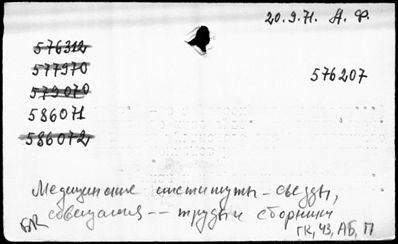 20.9.71. А. Ф.
576312
577970
579070
576207
586071
586072
Медицинские институты - съезды,
совещания -- труды и сборники
БR
ГК, ЧЗ, АБ, П